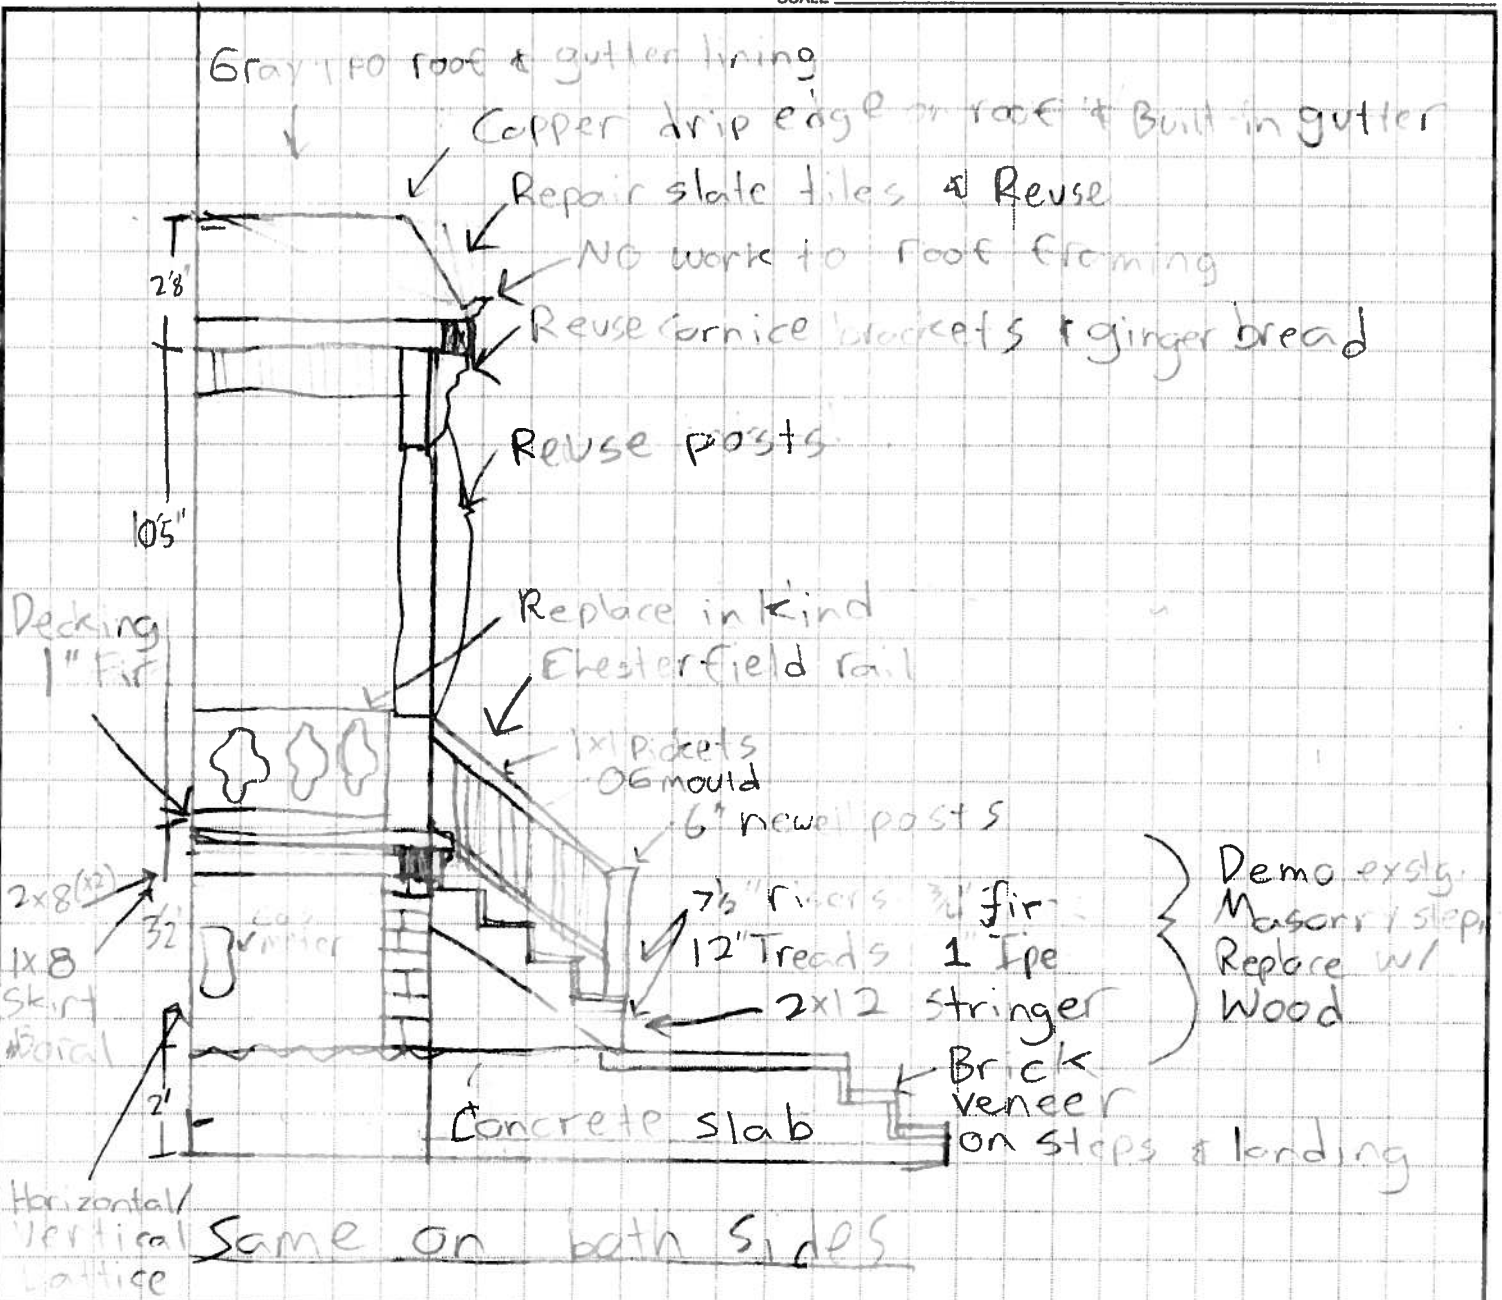 SCALE
Gray TPO roof & gutter lining
Copper drip edge on roof & Built-in gutter
Repair slate tiles & Reuse
NO work to roof framing
2'8"
Reuse cornice brackets & ginger bread
Reuse posts
10'5"
Decking
1" Fir
Replace in kind
Chesterfield rail
1x1 pickets
OG mould
6" newel posts
2x8 (x2)
1x8
Skirt
Boral
3½'
gas
meter
7½" risers ¾" fir
12" Treads 1" Ipe
2x12 stringer
Demo exstg.
Masonry steps
Replace w/
Wood
Brick
veneer
on steps & landing
2'
Concrete slab
Horizontal/
Vertical
Lattice
Same on both sides